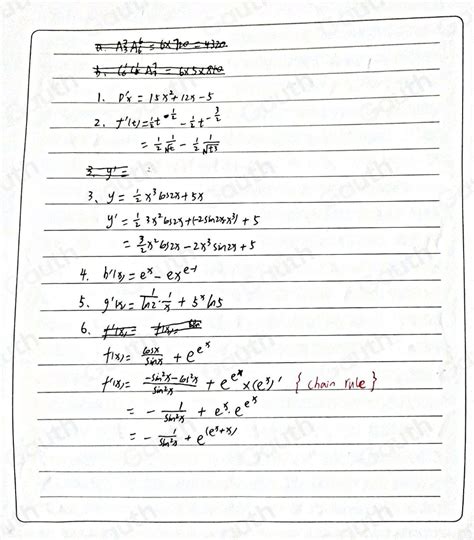 a. A₃³A₆⁶ = 6×720 = 4320
= 6×5×840
1. p'x = 15x²+12x-5
2. f'(t) = ½t^-½ - ½t^-3/2
= ½ 1/√t - ½ 1/√t³
3. y' =
3. y = ½x³cos2x+5x
y' = ½ 3x²cos2x+(-2sin2x x³) + 5
= 3/2 x²cos2x - 2x³sin2x + 5
4. h'(x) = e^x - ex^e-1
5. g'(x) = 1/ln2 · 1/x + 5^x ln5
6. f'(x) =
f(x) = cosx/sinx + e^e^x
f'(x) = -sin²x-cos²x/sin²x + e^e^x × (e^x)' { chain rule }
= - 1/sin²x + e^x · e^e^x
= - 1/sin²x + e^(e^x+x)